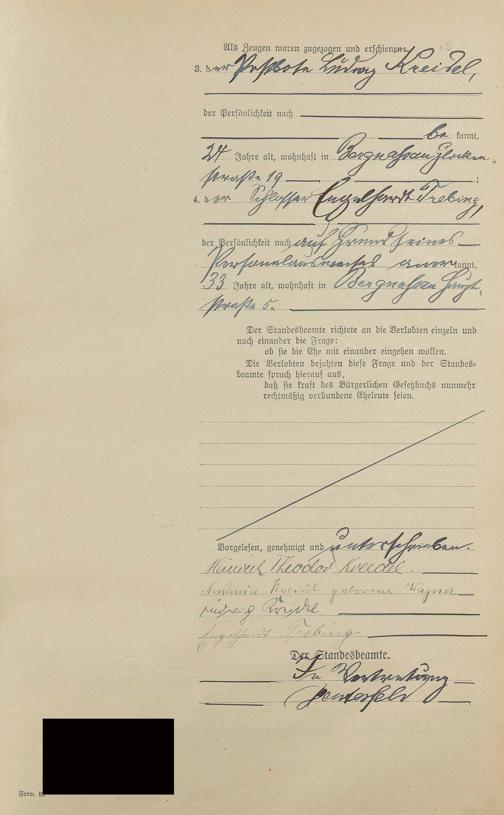 Als Zeugen waren zugezogen und erschienen:
3. der Postbote Ludwig Kreidel,
der Persönlichkeit nach
be kannt,
24 Jahre alt, wohnhaft in Bergnassau
straße 19 ;
4. der Schlosser Engelhardt Trebing,
der Persönlichkeit nach auf Grund seines
Personalausweises anerkannt,
33 Jahre alt, wohnhaft in Bergnassau Haupt-
straße 5.
Der Standesbeamte richtete an die Verlobten einzeln und
nach einander die Frage:
ob sie die Ehe mit einander eingehen wollen.
Die Verlobten bejahten diese Frage und der Standes-
beamte sprach hierauf aus,
daß sie kraft des Bürgerlichen Gesetzbuchs nunmehr
rechtmäßig verbundene Eheleute seien.
Vorgelesen, genehmigt und unterschrieben.
Heinrich Theodor Kreidel.
Kreidel geborene Wagner
Ludwig Kreidel
Engelhardt Trebing
Der Standesbeamte.
In Vertretung
Form.